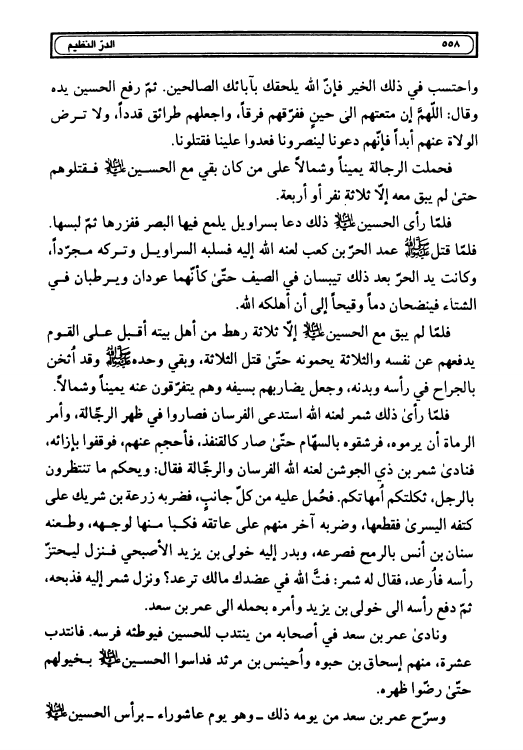 ٥٥٨
الدرّ النظيم
واحتسب في ذلك الخير فإنّ الله يلحقك بآبائك الصالحين. ثمّ رفع الحسين يده
وقال: اللّهمّ إن متعتهم الى حينٍ ففرّقهم فرقاً، واجعلهم طرائق قدداً، ولا تـرض
الولاة عنهم أبداً فإنّهم دعونا لينصرونا فعدوا علينا فقتلونا.
فحملت الرجالة يميناً وشمالاً على من كان بقي مع الحسـين عليه السلام فـقتلوهم
حتىٰ لم يبق معه إلّا ثلاثة نفر أو أربعة.
فلمّا رأى الحسين عليه السلام ذلك دعا بسراويل يلمع فيها البصر ففزرها ثمّ لبسها.
فلمّا قتل صلى الله عليه عمد الحرّ بن كعب لعنه الله إليه فسلبه السراويـل وتركه مـجرّداً،
وكانت يد الحرّ بعد ذلك تيبسان في الصيف حتّىٰ كأنّهما عودان ويـرطبان فـي
الشتاء فينضحان دماً وقيحاً إلى أن أهلكه الله.
فلمّا لم يبق مع الحسين عليه السلام إلّا ثلاثة رهط من أهل بيته أقـبل عـلى القوم
يدفعهم عن نفسه والثلاثة يحمونه حتىٰ قتل الثلاثة، وبقي وحده صلى الله عليه وقد أُثخن
بالجراح في رأسه وبدنه، وجعل يضاربهم بسيفه وهم يتفرّقون عنه يميناً وشمالاً.
فلمّا رأىٰ ذلك شمر لعنه الله استدعى الفرسان فصاروا في ظهر الرجّالة، وأمر
الرماة أن يرموه، فرشقوه بالسهّام حتّىٰ صار كالقنفذ، فأحجم عنهم، فوقفوا بإزائه،
فنادىٰ شمر بن ذي الجوشن لعنه الله الفرسان والرجّالة فقال: ويحكم ما تنتظرون
بالرجل، ثكلتكم أُمهاتكم. فحُمل عليه من كلّ جانبٍ، فضربه زرعة بن شريك على
كتفه اليسرىٰ فقطعها، وضربه آخر منهم على عاتقه فكـبا مـنها لوجـهه، وطـعنه
سنان بن أنس بالرمح فصرعه، وبدر إليه خولى بن يزيد الأصبحي فـنزل ليـحتزّ
رأسه فأُرعد، فقال له شمر: فتَّ الله في عضدك مالك ترعد؟ ونزل شمر إليه فذبحه،
ثمّ دفع رأسه الى خولى بن يزيد وأمره بحمله الى عمر بن سعد.
ونادىٰ عمر بن سعد في أصحابه من ينتدب للحسين فيوطئه فرسه. فانتدب
عشرة، منهم إسحاق بن حبوه وأُحينس بن مرثد فداسوا الحسـين عليه السلام بـخيولهم
حتىٰ رضّوا ظهره.
وسرّح عمر بن سعد من يومه ذلك ـ وهو يوم عاشوراء ـ برأس الحسين عليه السلام